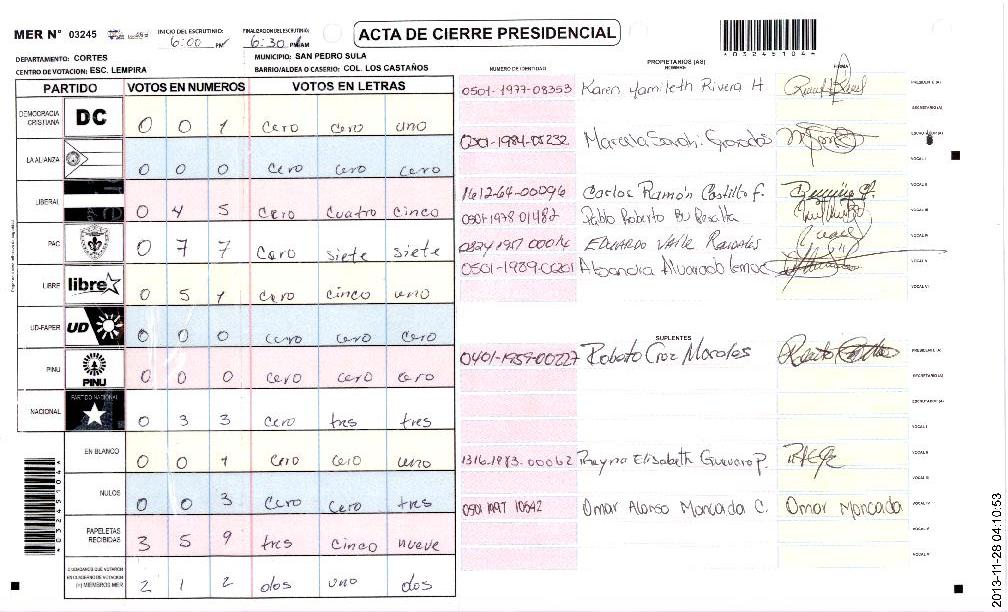 MER N° 03245
INICIO DEL ESCRUTINIO: 6:00 PM
FINALIZACION DEL ESCRUTINIO: 6:30 PM/AM
ACTA DE CIERRE PRESIDENCIAL
* 0 3 2 4 5 1 0 4 *
DEPARTAMENTO: CORTES
MUNICIPIO: SAN PEDRO SULA
CENTRO DE VOTACION: ESC. LEMPIRA
BARRIO/ALDEA O CASERIO: COL. LOS CASTAÑOS
PARTIDO VOTOS EN NUMEROS VOTOS EN LETRAS
DEMOCRACIA CRISTIANA DC 0 0 1 cero cero uno
LA ALIANZA 0 0 0 cero cero cero
LIBERAL 0 4 5 cero cuatro cinco
PAC 0 7 7 cero siete siete
LIBRE libre 0 5 1 cero cinco uno
UD-FAPER UD 0 0 0 cero cero cero
PINU PINU 0 0 0 cero cero cero
NACIONAL PARTIDO NACIONAL 0 3 3 cero tres tres
EN BLANCO 0 0 1 cero cero uno
NULOS 0 0 3 cero cero tres
PAPELETAS RECIBIDAS 3 5 9 tres cinco nueve
CIUDADANOS QUE VOTARON EN CUADERNO DE VOTACION (+) MIEMBROS MER 2 1 2 dos uno dos
NUMERO DE IDENTIDAD
PROPIETARIOS (AS)
NOMBRE
FIRMA
0501-1977-08353 Karen Yamileth Rivera H. PRESIDENTE (A)
SECRETARIO(A)
0501-1984-05232 Marcela Sarahi Granados ESCRUTADOR (A)
VOCAL I
1612-64-00096 Carlos Ramón Castillo F. VOCAL II
0501-1978 01482 Pablo Roberto VOCAL III
EDUARDO Valle VOCAL IV
0501-1989-0201 Alejandra Alvarado VOCAL V
VOCAL VI
SUPLENTES
0401-1959-00227 Roberto Cruz Morales PRESIDENTE (A)
SECRETARIO(A)
ESCRUTADOR (A)
VOCAL I
1316-1983-00062 Reyna Elizabeth Guevara P. VOCAL II
VOCAL III
0501 1997 10542 Omar Alonso Moncada C. Omar Moncada VOCAL IV
VOCAL V
VOCAL VI
* 0 3 2 4 5 1 0 4 *
2013-11-28 04:10:53